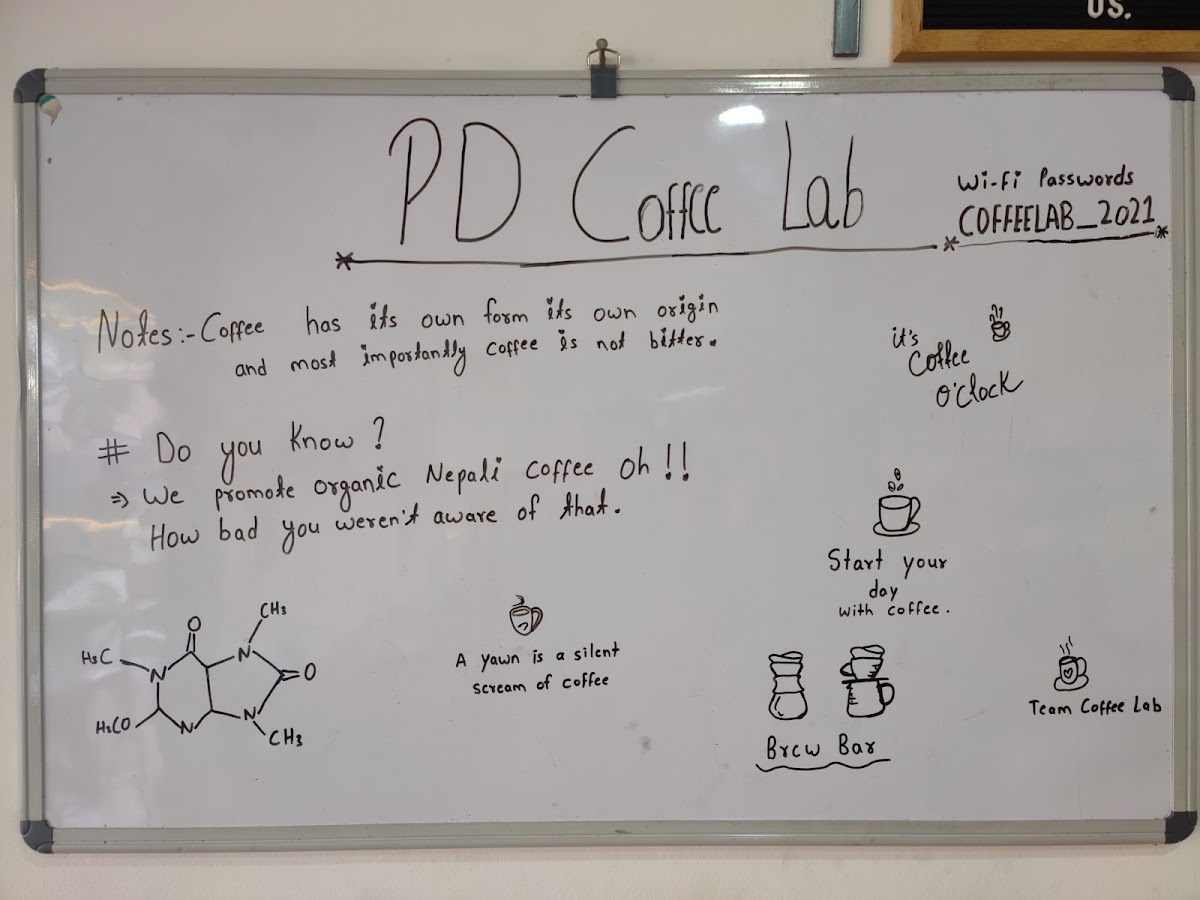 US.
PD Coffee Lab
Wi-Fi Passwords
COFFEELAB_2021
Notes:- Coffee has its own form its own origin
and most importantly coffee is not bitter.
# Do you know ?
⇒ We promote organic Nepali coffee oh !!
How bad you weren't aware of that.
it's
Coffee
O'Clock
Start your
day
with coffee.
CH3
O
H3C
N
N
O
H3CO
N
N
CH3
A yawn is a silent
scream of coffee
Brew Bar
Team Coffee Lab